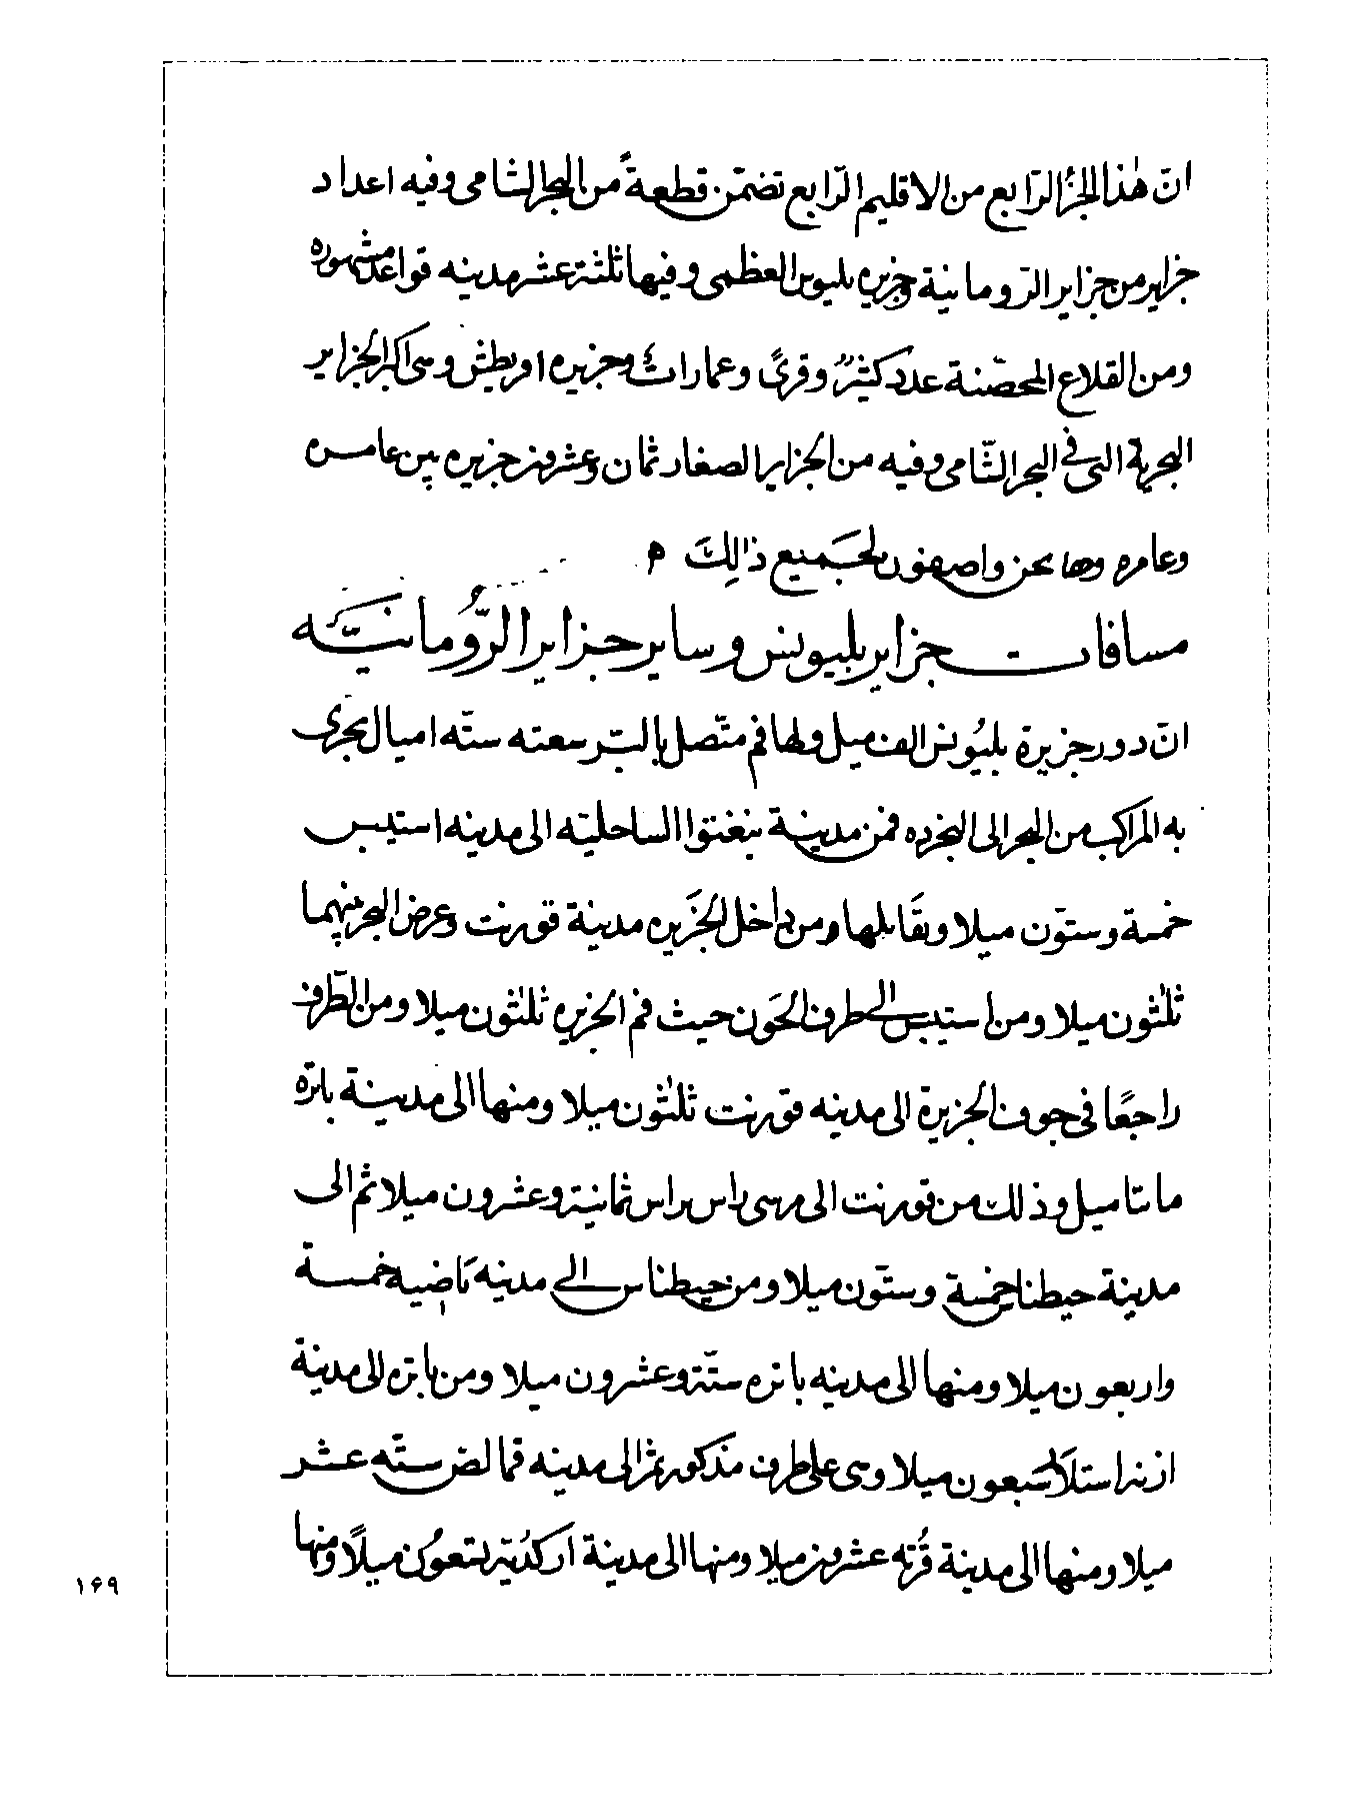 انّ هٰذا الجزُ الرّابع من الاقليم الرّابع تضمّن قطعةً من البحر الشامى وفيه اعداد
جزاير من جزاير الرّومانية وجزيره بليونس العظمى وفيها ثلثة عشر مدينه قواعد مشهوره
ومن القلاع المحصّنة عدد كثيرٌ وقرىً وعمارات وجزيره اقريطش وهى اكبر الجزاير
البحرية التى فى البحر الشّامى وفيه من الجزاير الصغار ثمان وعشرون جزيره بين عامره
وغامره وها نحن واصفون لجميع ذالك ه
مسافات جزاير بليونس وساير جزاير الرُّومانيّه
انّ دور جزيرة بليُونس الف ميل ولها فم متّصل بالبرّ سعته ستّه اميال يجرى
به المراكب من البحر الى البحر ده فمن مدينة بنغنتوا الساحليّه الى مدينه استيبس
خمسة وستّون ميلا ويقابلها من داخل الجَزيره مدينة قورنت وعرض البحر بينهما
ثلٰثون ميلا ومن استيبس الى طرف الجَون حيث فم الجزيره ثلٰثون ميلا ومن الطّرف
راجعًا فى جوف الجزيرة الى مدينه قورنت ثلٰثون ميلا ومنها الى مدينة باتره
مائتا ميل وذلك من قورنت الى مرسى راس براس ثمانية وعشرون ميلا ثم الى
مدينة حيطناس خمسة وستّون ميلا ومن حيطناس الى مدينه ناضيه خمسة
واربعون ميلا ومنها الى مدينه باتره ستّة وعشرون ميلا ومن باتره الى مدينة
استلاً سبعون ميلا وهى على طرف مذكور ثمّ الى مدينه قمالض ستّه عشر
ميلا ومنها الى مدينة قُرنه عشرون ميلا ومنها الى مدينة اركدُيّة تسعون ميلاً ومنها
١٦٩